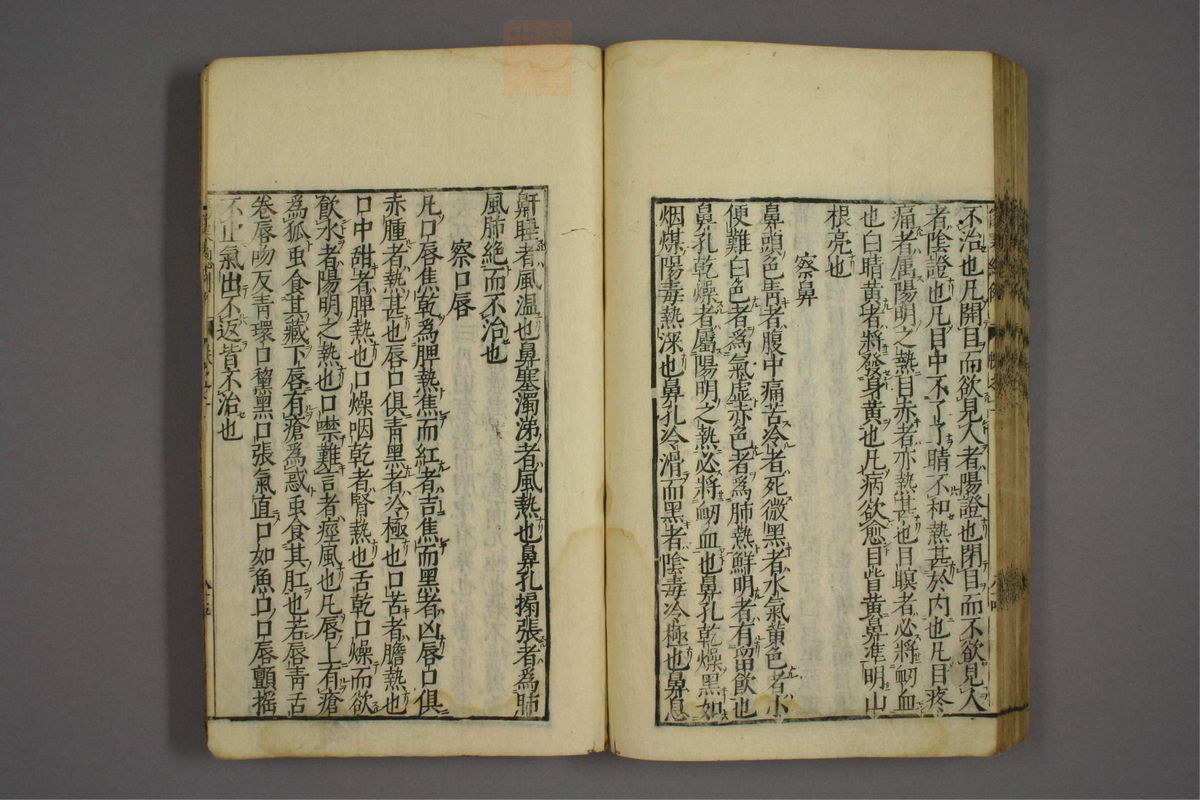 不治也凡開目而欲見人者陽證也閉目而不欲見人
者陰證也凡目中不了了睛不和熱甚於内也凡目疼
痛者属陽明之熱目赤者亦熱甚也目瞑者必將衂血
也白睛黄者將發身黄也凡病欲愈目眥黄鼻準明山
根亮也
察鼻
鼻頭色青者腹中痛苦冷者死微黑者水氣黄色者小
便難白色者爲氣虚赤色者爲肺熱鮮明者有留飲也
鼻孔乾燥者屬陽明之熱必將衂血也鼻孔乾燥黑如
烟煤陽毒熱深也鼻孔冷滑而黑者陰毒冷極也鼻息
鼾睡者風温也鼻塞濁涕者風熱也鼻孔搧張者為肺
風肺絶而不治也
察口唇
凡口唇焦乾爲脾熱焦而紅者吉焦而黑者凶唇口俱
赤腫者熱甚也唇口俱青黑者冷極也口苦者膽熱也
口中甜者脾熱也口燥咽乾者腎熱也舌乾口燥而欲
飲水者陽明之熱也口噤難言者痙風也凡唇上有瘡
為狐虫食其藏下唇有瘡爲惑虫食其肛也若唇青舌
卷唇吻反青環口黧黑口張氣直口如魚口口唇顫摇
不止氣出不返皆不治也